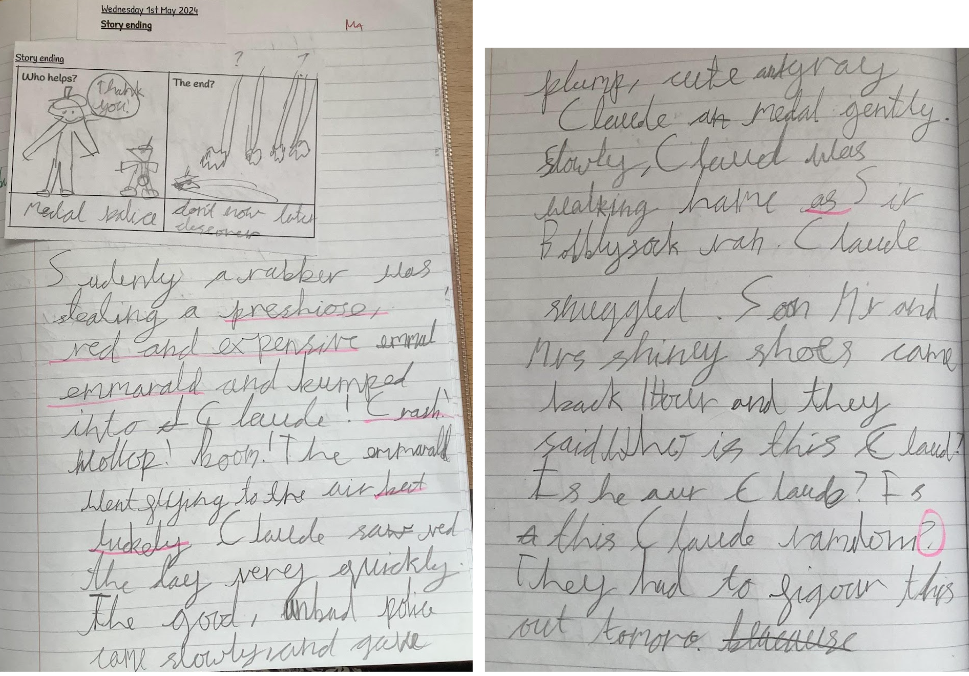 Wednesday 1st May 2024
Story ending
Story ending
Who helps?
Thank
you!
Medal police
The end?
? ?
don't now later
discover
Sudenly a rabber was
stealing a preshiose,
red and expensive emmal
emmarald and bumped
into Claude! Crash!
Wollop! boom! The emmarald
went flying to the air but
luckely Claude saw red
the day very quickly.
The good, unbad police
came slowly and gave
plump, cute and gray
Claude an medal gently.
Slowly, Claud was
walking hame as Sir
Bobblysock ran. Claude
snuggled. Soon Mr and
Mrs shiney shoes came
back 1 Hour and they
said Who is this Claud?
Is he aur Claude? Is
this Claude random?
They had to figour this
out tomoro. beacause